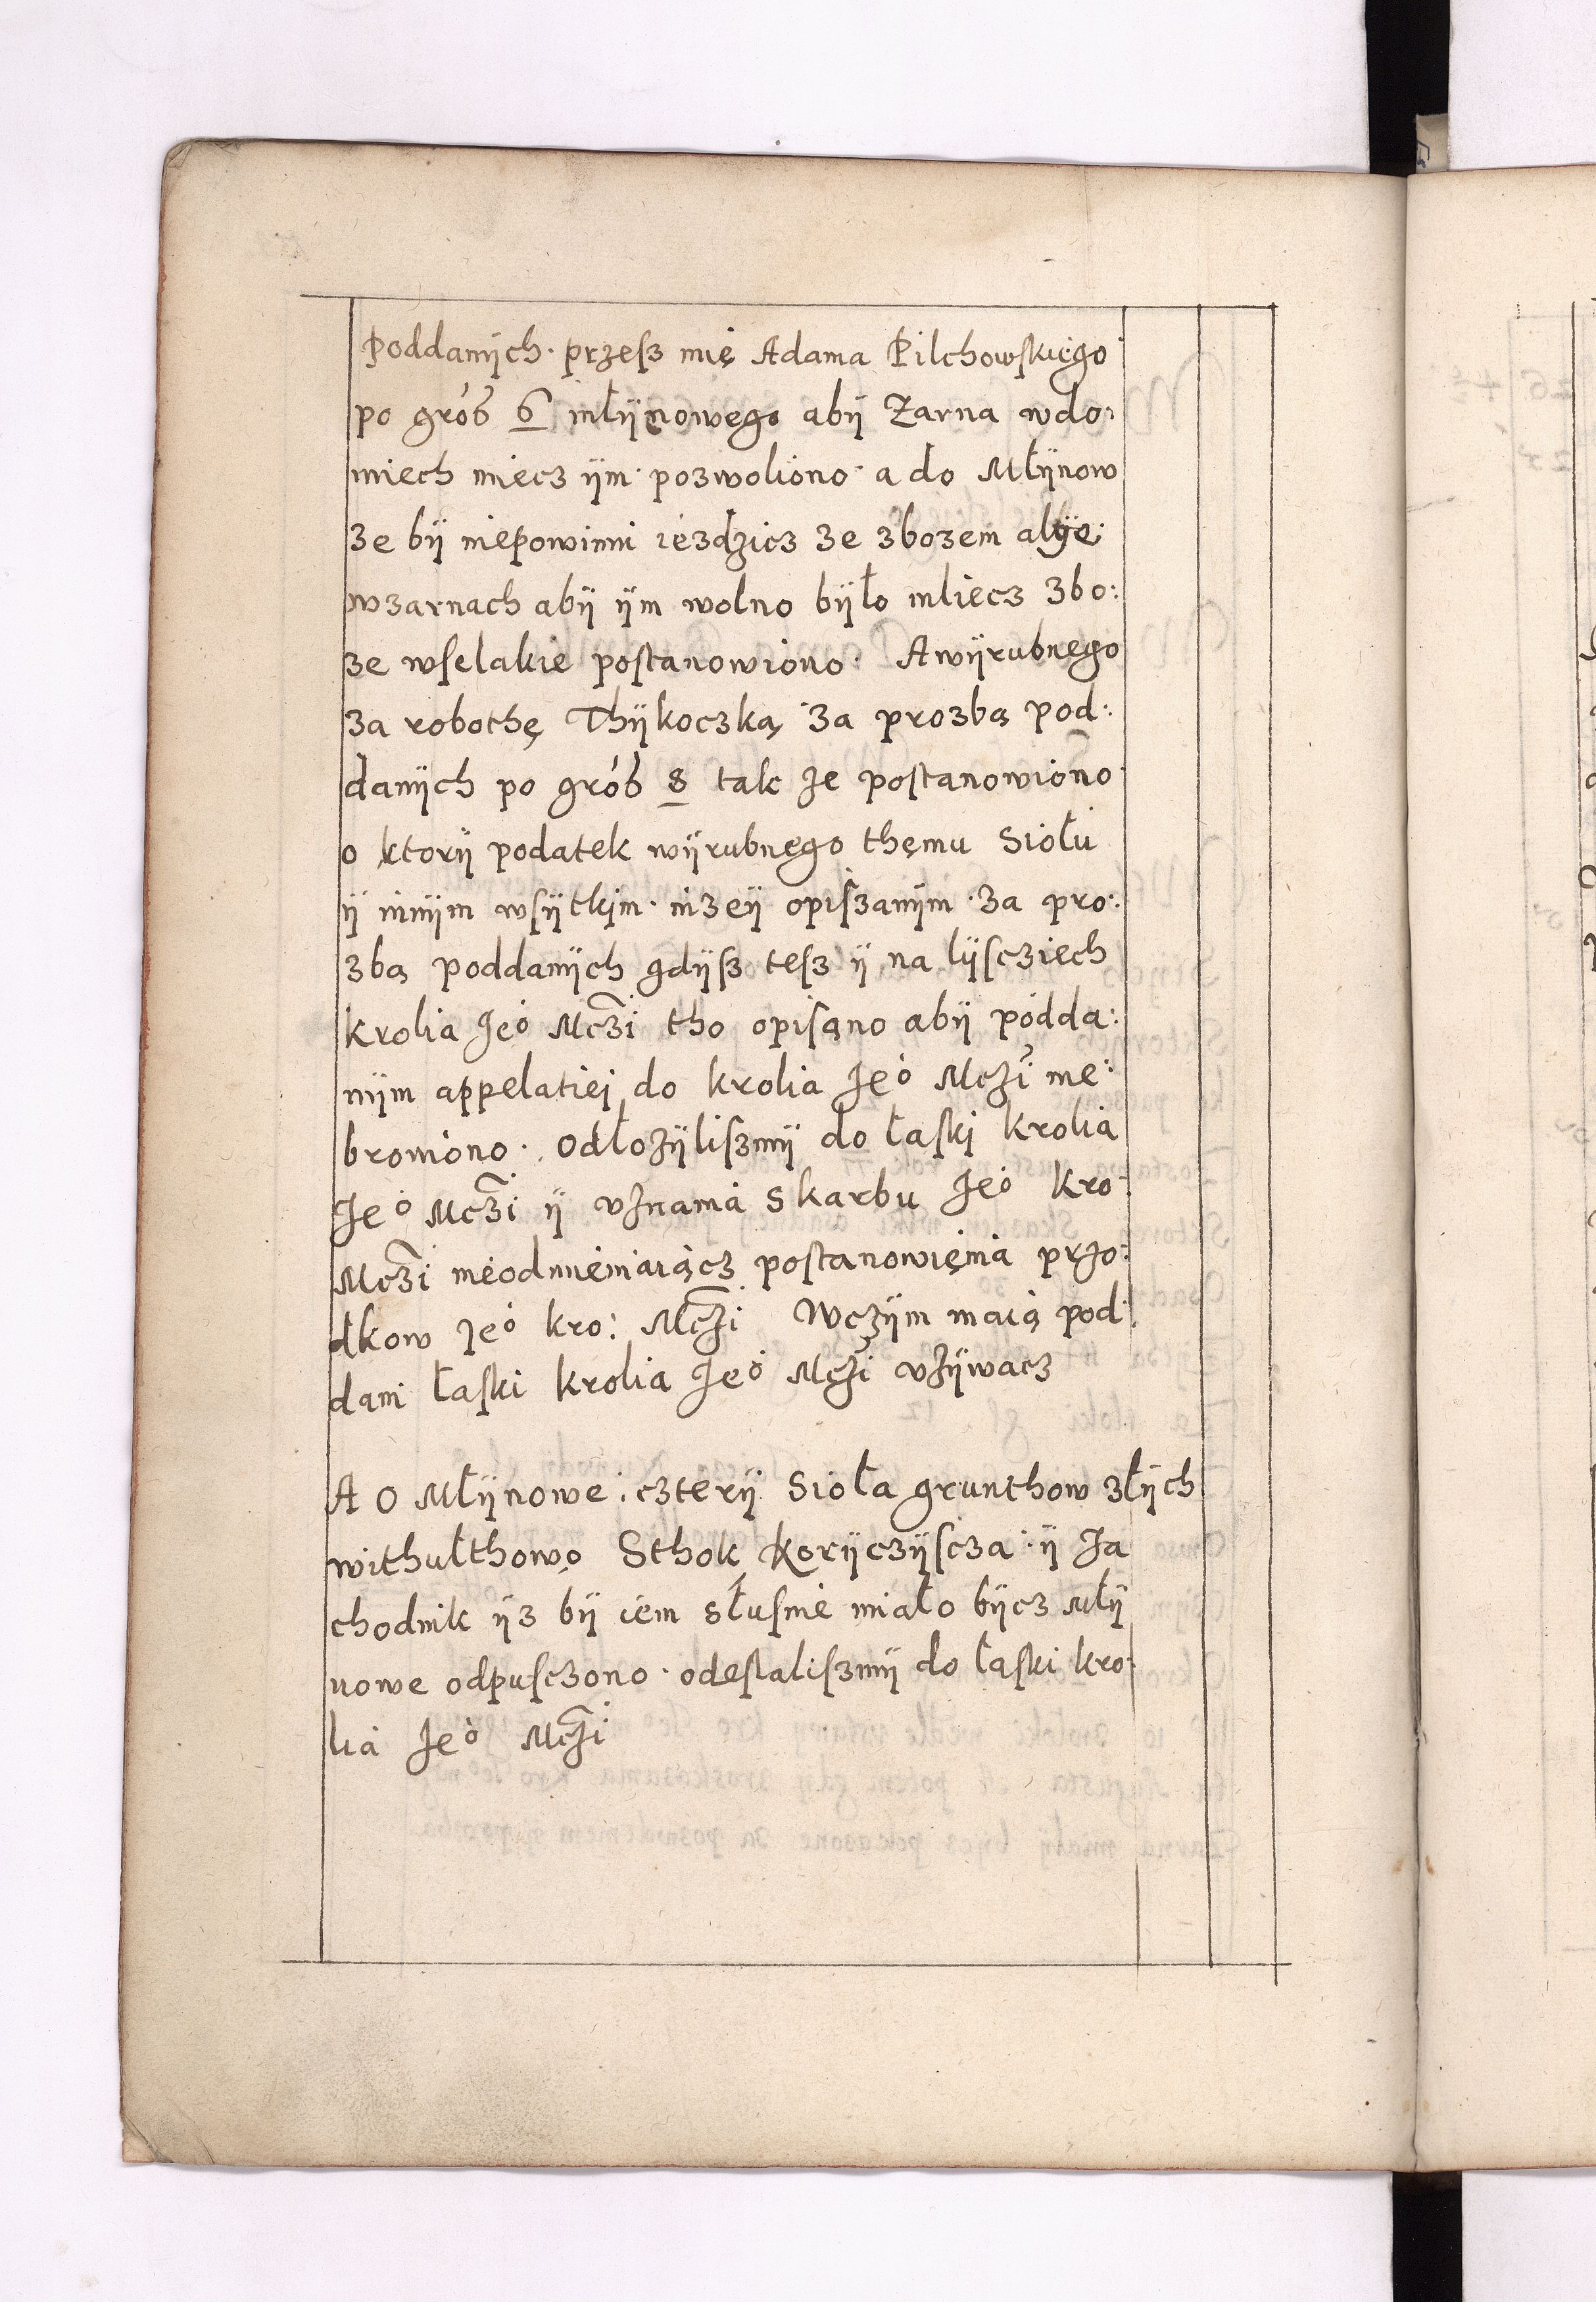 Poddanÿch· przesz mię Adama Pilchowskięgo
po gróß 6 młÿnowego abÿ Żarna wdo:
miech miecz ÿm· pozwoliono· a do Młÿnow
ze bÿ niepowinni iezdzicz ze zbozem alÿe:
wzarnach abÿ ÿm wolno bÿło mliecz zbo:
ze wselakie postanowiono· A wÿrubnego
za robothę Thÿkoczką za prozbą pod:
danÿch po gróß 8 tak że postanowiono·
o ktorÿ podatek wÿrubnego thęmu siołu
ÿ innÿm wsÿtkim· nizeÿ opiszanÿm· za pro:
zbą poddanÿch gdÿsz tesz ÿ na lÿscziech
krolia Jeo Mczi tho opisano abÿ podda:
nÿm appelatiei do krolia Jeo Mczi nie:
broniono· Odłożÿliszmÿ do łaski krolia
Jeo Mczi ÿ vznania skarbu Jeo kro:
Mczi nieodmieniaiącz postanowięnia przo:
dkow Jeo kro: Mczi Wczÿm maią pod:
dani łaski krolia Jeo Mczi vżÿwacz
A O Młÿnowe czterÿ Sioła grunthow złÿch
withułthowo Sthok Korÿczÿscza· ÿ Za
chodnik ÿz bÿ iem słusnie miało bÿcz młÿ
nowe odpusczono· odesłaliszmÿ do łaski kro:
lia Jeo Mczi